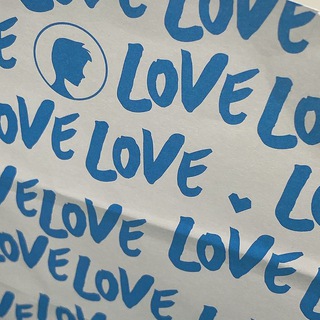 LOVE LOVE
LOVE LOVE
LOVE LOVE
LOVE LOVE
LOVE LOVE
LOVE